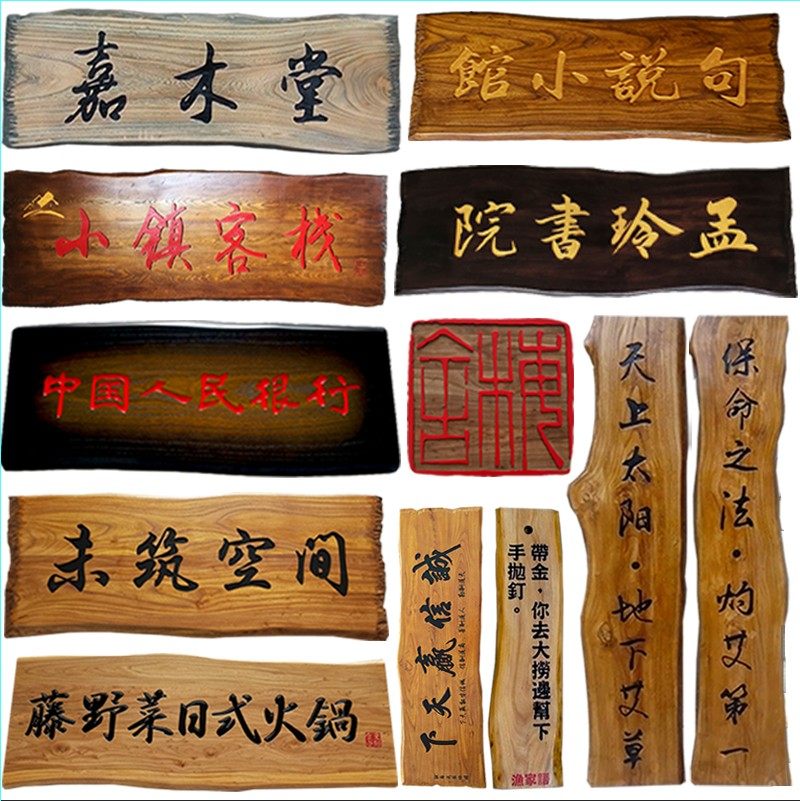 嘉木堂
句說小館
小鎮客栈
孟玲書院
中国人民银行
未筑空間
藤野菜日式火鍋
誠信贏天下
帶金·你去大撈邊幫下
手拋釘。
保命之法·灼艾第一
天上太阳·地下艾草